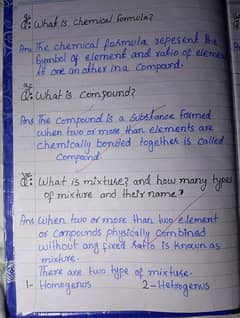 Q: What is chemical formula?
Ans The chemical formula repesent the
Symbol of element and ratio of elemen
it one an other in a compound.
Q: What is compound?
Ans The compound is a substance formed
when two or more than elements are
chemically bonded together is called
Compound
Q: What is mixture? and how many types
of mixture and their name?
Ans When two or more than two element
or compounds physically combined
without any fixed ratio is known as
mixture.
There are two type of mixture.
1- Homogenus 2- Hetrogenus